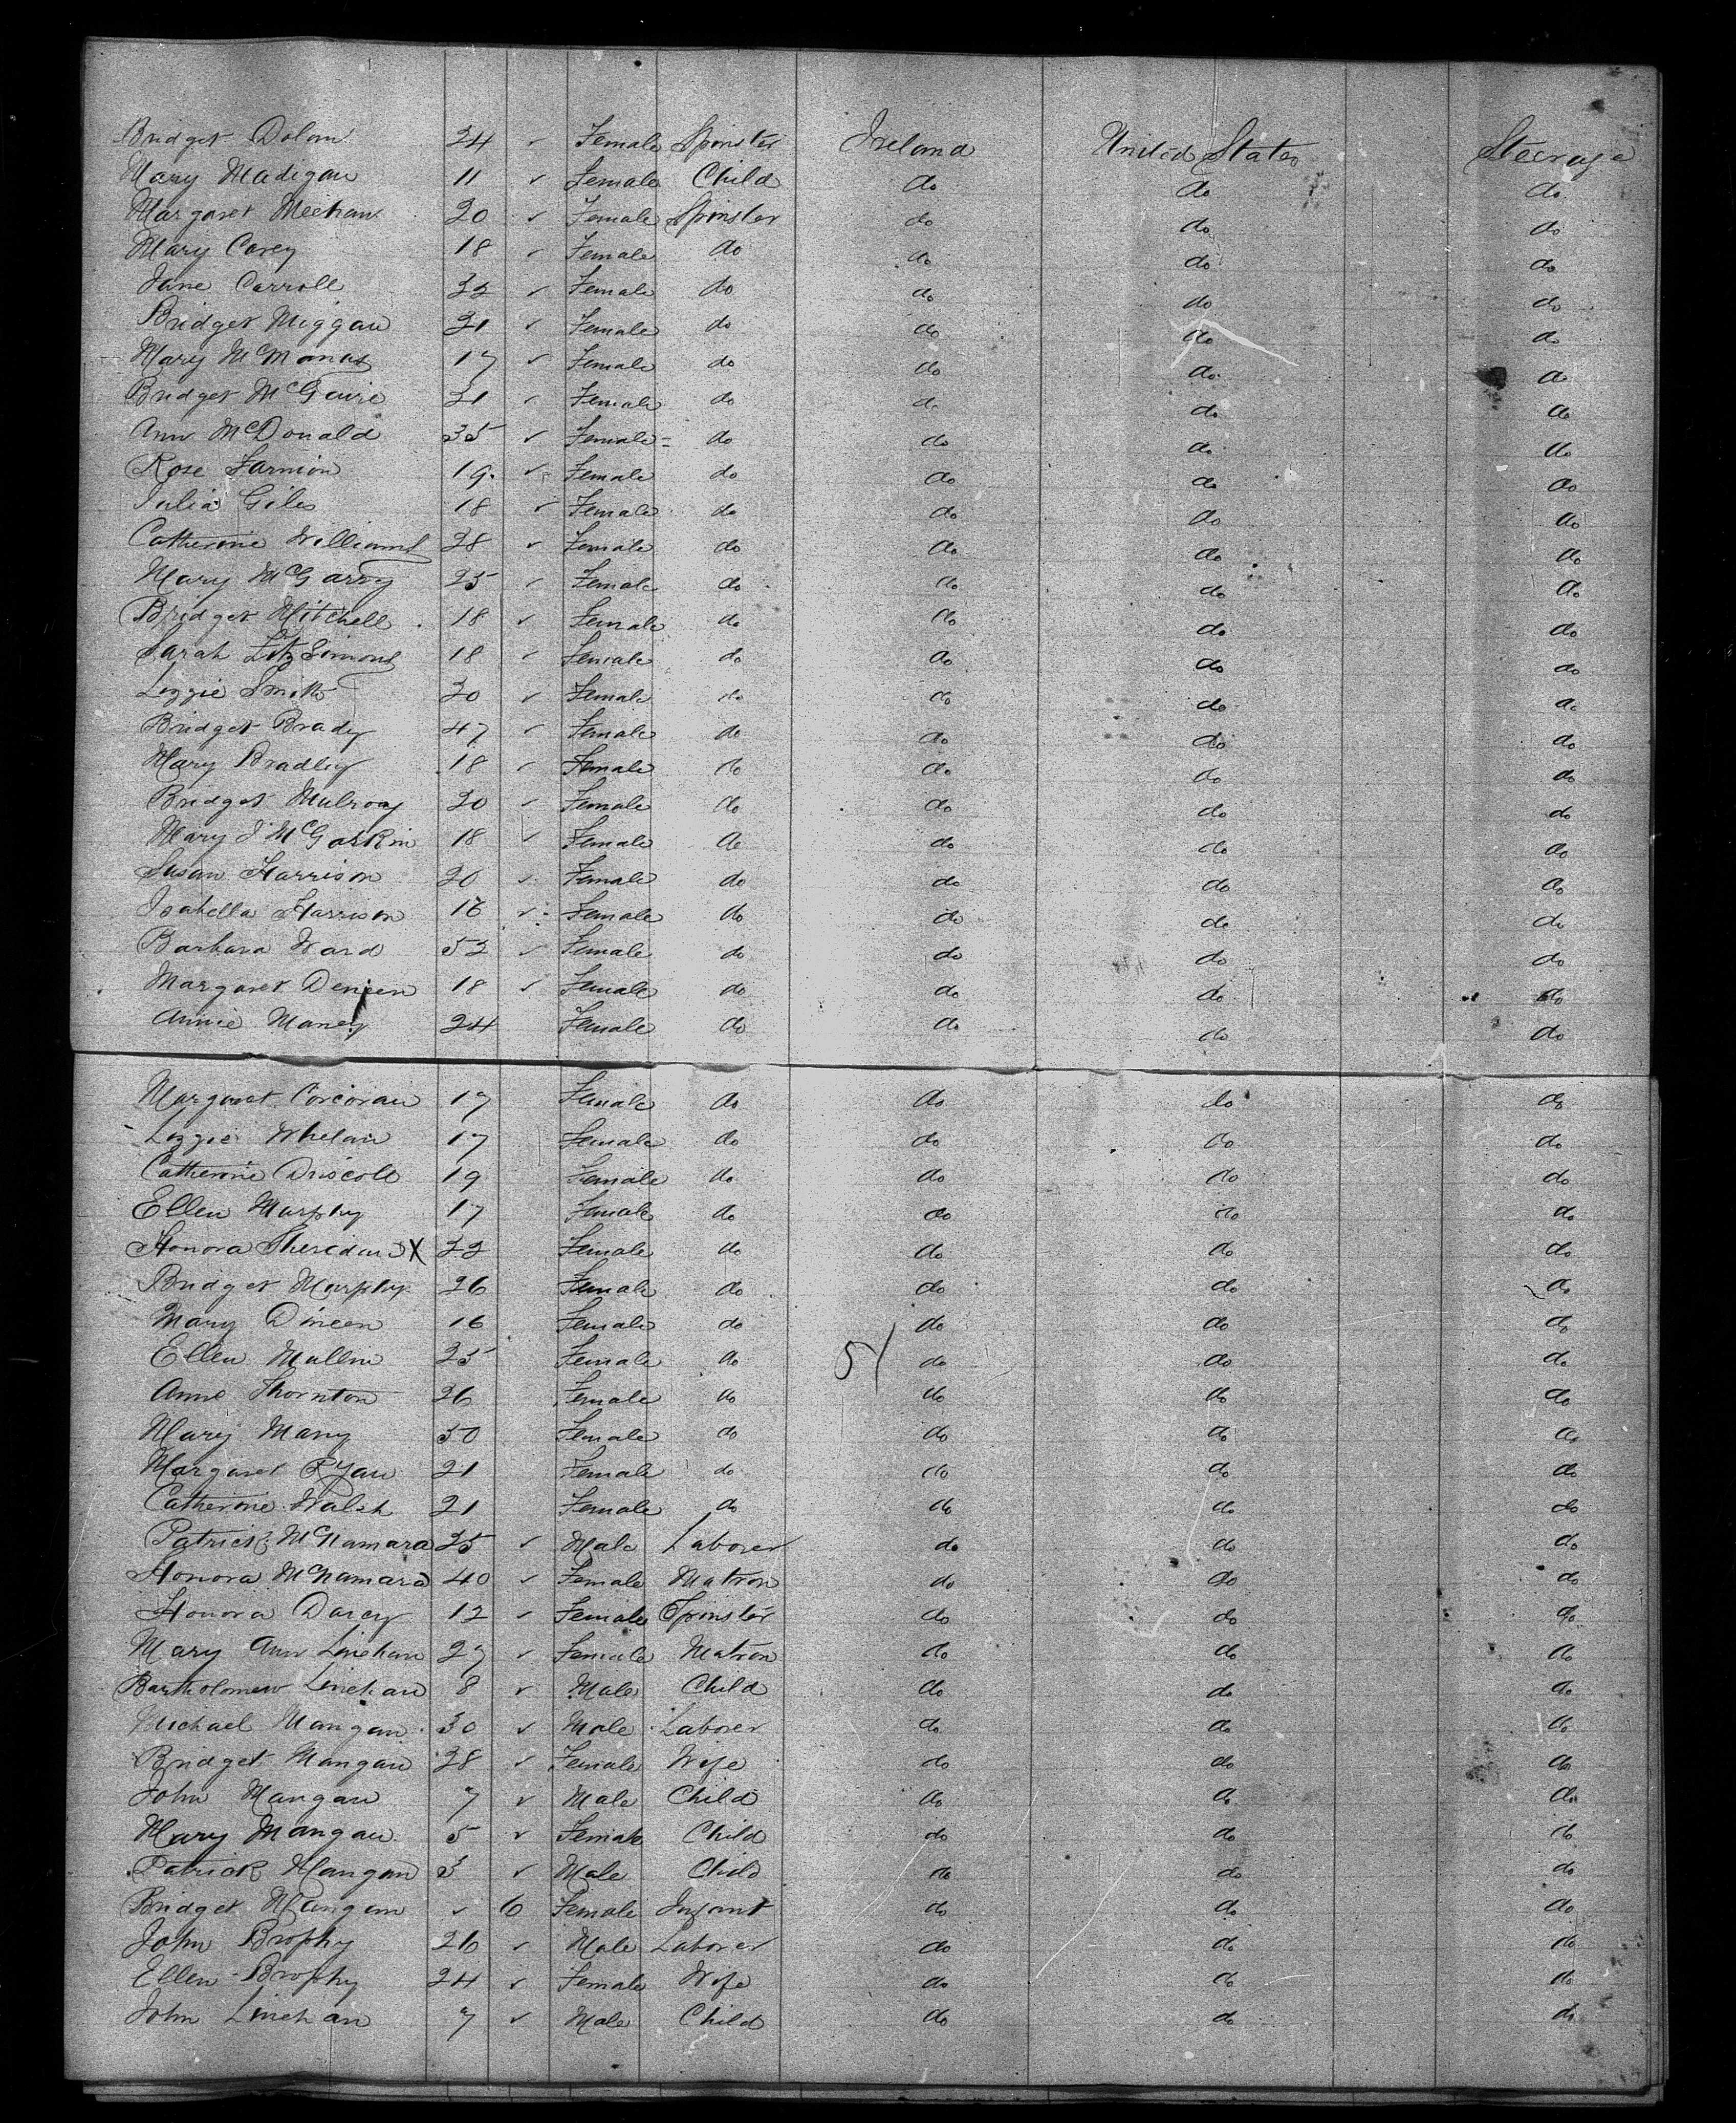 Bridget Dolan 24 ✓ Female Spinster Ireland United States Steerage
Mary Madigan 11 ✓ Female Child do do do
Margaret Meehan 20 ✓ Female Spinster do do do
Mary Carey 18 ✓ Female do do do do
Jane Carroll 32 ✓ Female do do do do
Bridget Meggan 21 ✓ Female do do do do
Mary McManus 17 ✓ Female do do do do
Bridget McGuire 21 ✓ Female do do do do
Ann McDonald 35 ✓ Female do do do do
Rose Farmion 19 ✓ Female do do do do
Julia Giles 18 ✓ Female do do do do
Catherine Williams 28 ✓ Female do do do do
Mary McGarry 25 ✓ Female do do do do
Bridget Mitchell 18 ✓ Female do do do do
Sarah FitzSimons 18 ✓ Female do do do do
Lizzie Smith 30 ✓ Female do do do do
Bridget Brady 47 ✓ Female do do do do
Mary Bradley 18 ✓ Female do do do do
Bridget Mulroay 20 ✓ Female do do do do
Mary J McGaskin 18 ✓ Female do do do do
Susan Harrison 20 ✓ Female do do do do
Isabella Harrison 16 ✓ Female do do do do
Barbara Ward 52 ✓ Female do do do do
Margaret Deneen 18 ✓ Female do do do do
Annie Maney 24 Female do do do do
Margaret Corcoran 17 Female do do do do
Lizzie Whelan 17 Female do do do do
Catherine Driscoll 19 Female do do do do
Ellen Murphy 17 Female do do do do
Honora Sheridan X 22 Female do do do do
Bridget Murphy 26 Female do do do do
Mary Dineen 16 Female do do do do
Ellen Mullin 25 Female do 51 do do do
Anne Thornton 26 Female do do do do
Mary Many 50 Female do do do do
Margaret Ryan 21 Female do do do do
Catherine Walsh 21 Female do do do do
Patrick McNamara 35 ✓ Male Laborer do do do
Honora McNamara 40 ✓ Female Matron do do do
Honora Darcy 12 ✓ Female Spinster do do do
Mary Ann Linehan 27 ✓ Female Matron do do do
Bartholomew Linehan 8 ✓ Male Child do do do
Michael Mangan 30 ✓ Male Laborer do do do
Bridget Mangan 28 ✓ Female Wife do do do
John Mangan 7 ✓ Male Child do do do
Mary Mangan 5 ✓ Female Child do do do
Patrick Mangan 3 ✓ Male Child do do do
Bridget Mangan ✓ 6 Female Infant do do do
John Brophy 26 ✓ Male Laborer do do do
Ellen Brophy 24 ✓ Female Wife do do do
John Linehan 7 ✓ Male Child do do do